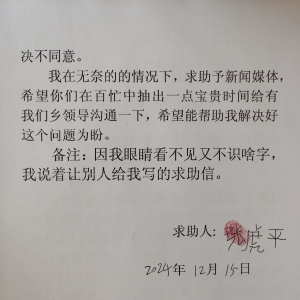 决不同意。
我在无奈的的情况下，求助予新闻媒体，
希望你们在百忙中抽出一点宝贵时间给有
我们乡领导沟通一下，希望能帮助我解决好
这个问题为盼。
备注：因我眼睛看不见又不识啥字，
我说着让别人给我写的求助信。
求助人：虎平
2024年 12月 15日